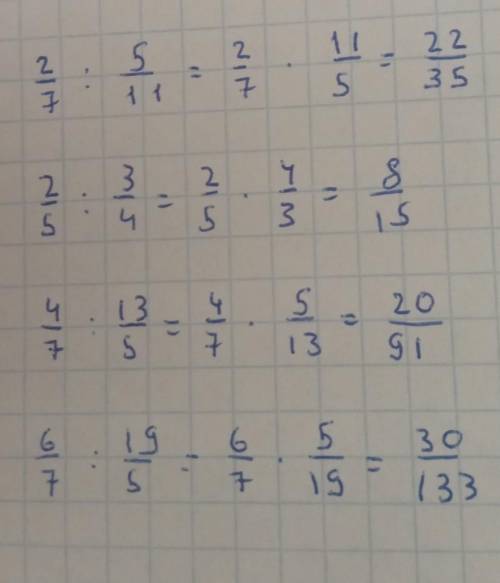 2/7 : 5/11 = 2/7 · 11/5 = 22/35
2/5 : 3/4 = 2/5 · 4/3 = 8/15
4/7 : 13/5 = 4/7 · 5/13 = 20/91
6/7 : 19/5 = 6/7 · 5/19 = 30/133